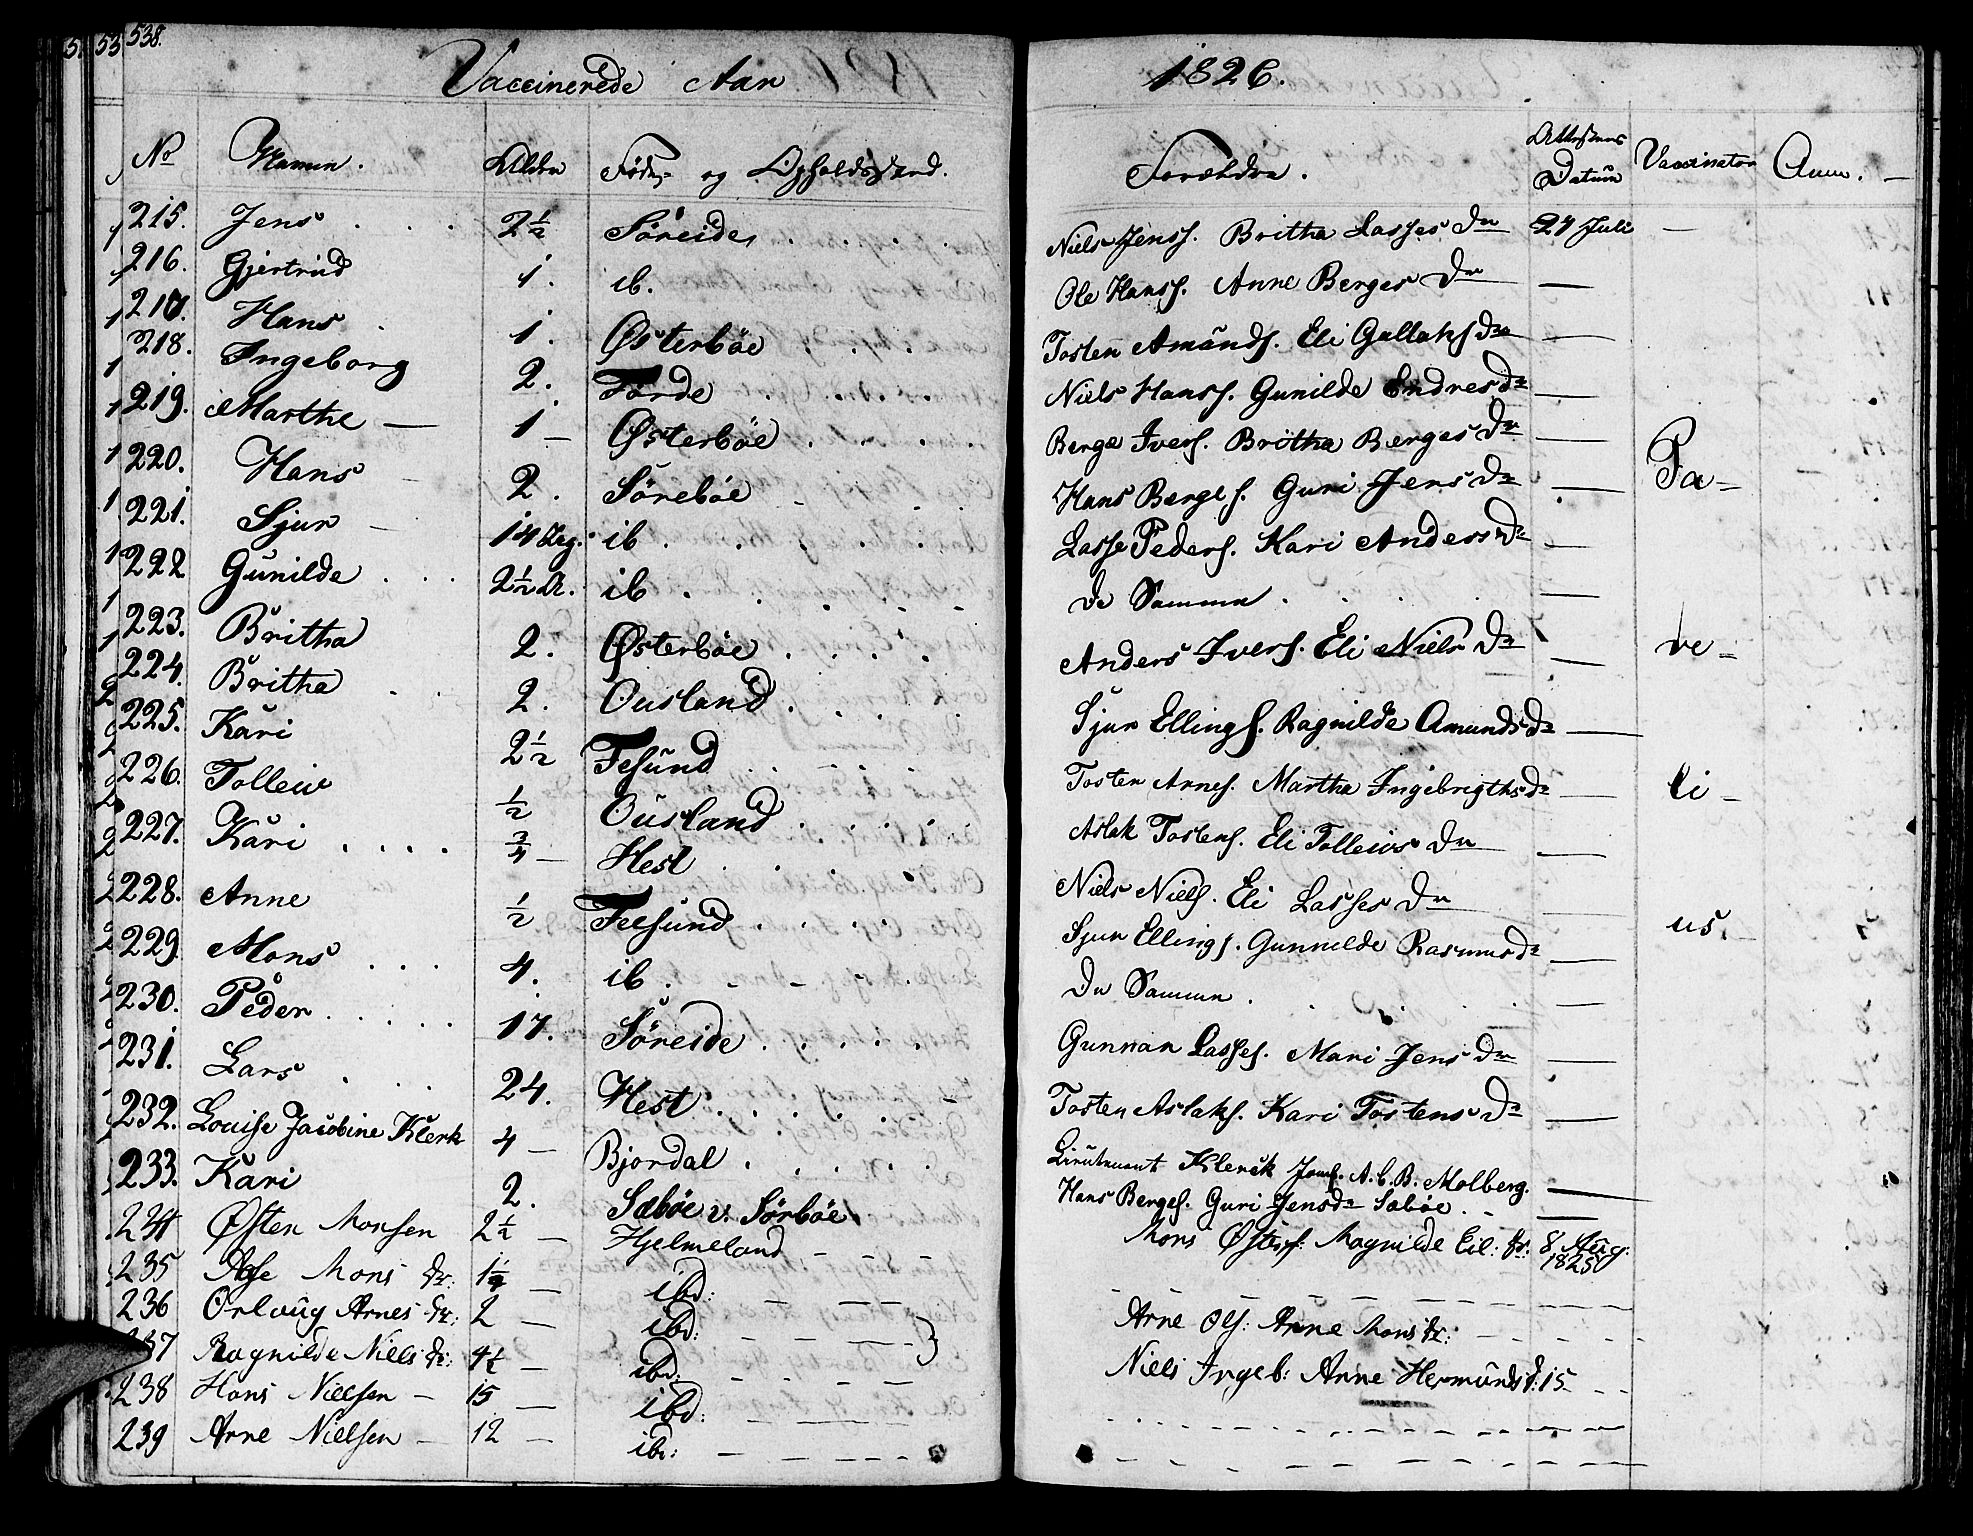 538.
Vaccinerede Aar 1826.
No Namen. Alder Føde- og Opholdsstæd. Forældre. Attestens Datum Vaccinator Anm.
215. Jens 2½ Söreide Niels Jenss. Britha Lasses Dr 27 Juli —
216. Gjertrud 1. ib. Ole Hanss. Anne Berges Dr —
217. Hans 1. Østerböe Tosten Amunds. Eli Gullaks Dr —
218. Ingeborg 2. Förde Niels Hanss. Gunilde Endres Dr —
219. Marthe — 1 — Østerböe Berge Ivers. Britha Berges Dr —
220. Hans 2. Söreböe Hans Berges. Guri Jens Dr — Pa-
221. Sjur 14 Dag. ib. Lasse Peders. Kari Anders Dr —
222 Gunilde 2½ A. ib. De Samme —
223. Britha 2. Østerböe Anders Ivers. Eli Niels Dr — ve-
224. Britha 2. Ousland Sjur Ellings. Ragnilde Amunds Dr —
225. Kari 2½ Fesund Tosten Arnes. Martha Ingebrigths Dr — li-
226. Tolleiv ½ Ousland Aslak Tostens. Eli Tolleivs Dr —
227. Kari ¾ — Hest Niels Niels. Eli Lasses Dr —
228. Anne ½ Feesund Sjur Ellings. Gunnilde Rasmus Dr — us.
229. Mons 4. ib. De Samme —
230. Peder 17. Söreide Gunnar Lasses. Mari Jens Dr —
231. Lars 24. Hest Tosten Aslaks. Kari Tostens Dr —
232. Louise Jacobine Klerk 4 — Bjordal Lieutenant Klerck Jomf. A. C. B. Molberg. —
233. Kari 2. Sæböe v. Sörböe Hans Berges. Guri Jensdr Sæböe —
234 Østen Monsen 2½ — Hjelmeland Mons Østens: Magnilde Eil: dr. 8 Aug: 1825
235 Aase Mons dr: 1½ — ibd:
236 Orlaug Arnes dr: 2 — ibd: Arne Ols: Anne Mons dr:
237 Ragnilde Niels dr: 4½ — ibd: Niels Ingeb: Anne Hermunds d: 15
238 Hans Nielsen — 15 — ibd:
239 Arne Nielsen — 12 — ibd: